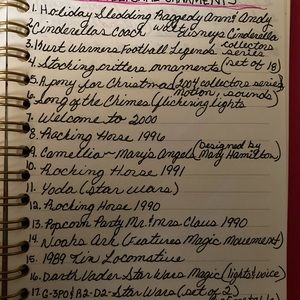 ORNAMENTS
1. Holiday Sledding Raggedy Ann & Andy
2. Cinderellas Coach Walt Disneys Cinderella
collectors
3. Kurt Warners Football Legends series
4. Stocking critters ornaments (set of 18)
5. A pony for Christmas (2004 collectors series)
motion, sounds)
6. Song of the Chimes (flickering lights
7. Welcome to 2000
8. Rocking Horse 1996
9. Camellia - Mary's Angels (Designed by
Mary Hamilton)
10. Rocking Horse 1991
11. Yoda (star wars)
12. Rocking Horse 1990
13. Popcorn Party Mr. & Mrs Claus 1990
14. Noahs Ark (Features Magic Movement)
15. 1989 Tin Locomotive
16. Darth Vader - Star Wars Magic (light & voice)
17. C-3PO & R2-D2 - Star Wars (set of 2)